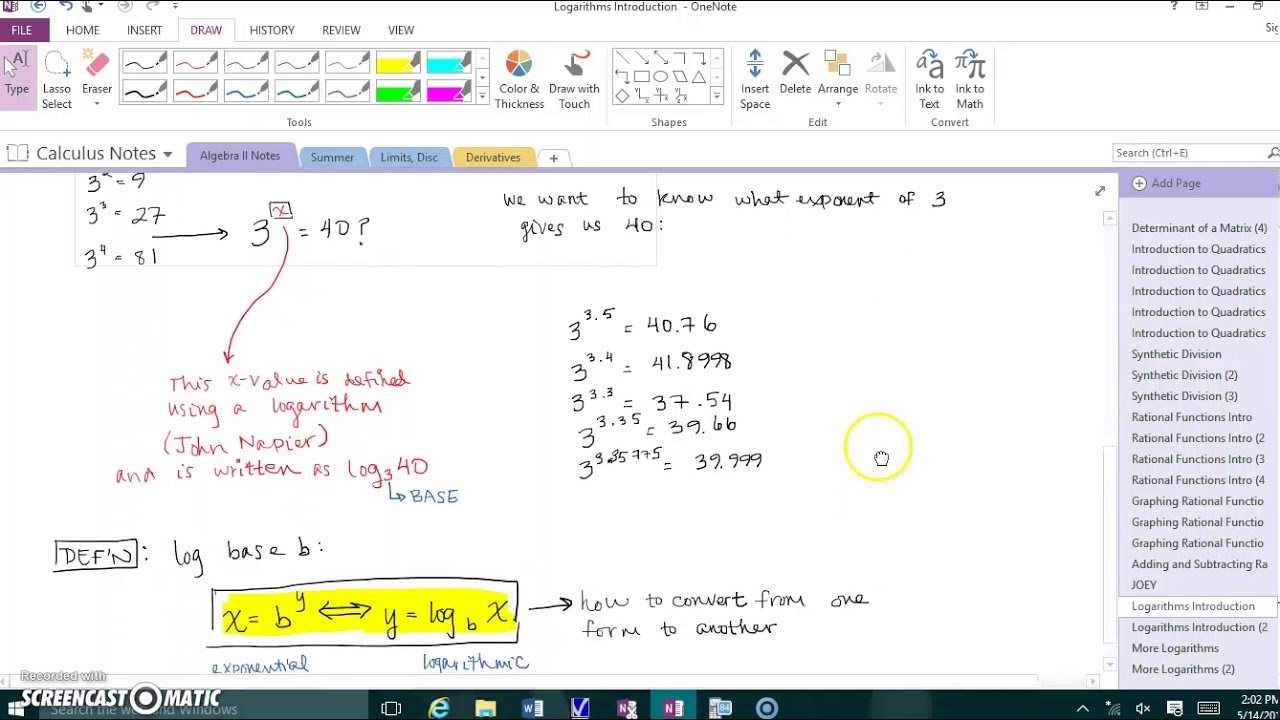 Logarithms Introduction - OneNote
FILE HOME INSERT DRAW HISTORY REVIEW VIEW
Type
Lasso Select
Eraser
Color & Thickness
Draw with Touch
Insert Space
Delete
Arrange
Rotate
Ink to Text
Ink to Math
Tools
Shapes
Edit
Convert
Calculus Notes
Algebra II Notes
Summer
Limits, Disc
Derivatives
Search (Ctrl+E)
3^2 = 9
3^3 = 27
3^4 = 81
3^x = 40?
we want to know what exponent of 3
gives us 40:
3^3.5 = 40.76
3^3.4 = 41.8998
3^3.3 = 37.54
3^3.35 = 39.66
3^3.35775 = 39.999
This x-value is defined
using a logarithm
(John Napier)
and is written as log_3 40
BASE
DEF'N: log base b:
x = b^y ⟺ y = log_b x
how to convert from one
form to another
exponential
logarithmic
Add Page
Determinant of a Matrix (4)
Introduction to Quadratics
Introduction to Quadratics
Introduction to Quadratics
Introduction to Quadratics
Introduction to Quadratics
Synthetic Division
Synthetic Division (2)
Synthetic Division (3)
Rational Functions Intro
Rational Functions Intro (2
Rational Functions Intro (3
Rational Functions Intro (4
Graphing Rational Functio
Graphing Rational Functio
Graphing Rational Functio
Adding and Subtracting Ra
JOEY
Logarithms Introduction
Logarithms Introduction (2
More Logarithms
More Logarithms (2)
Recorded with
SCREENCAST-O-MATIC
Search the web and Windows
2:02 PM
5/14/20